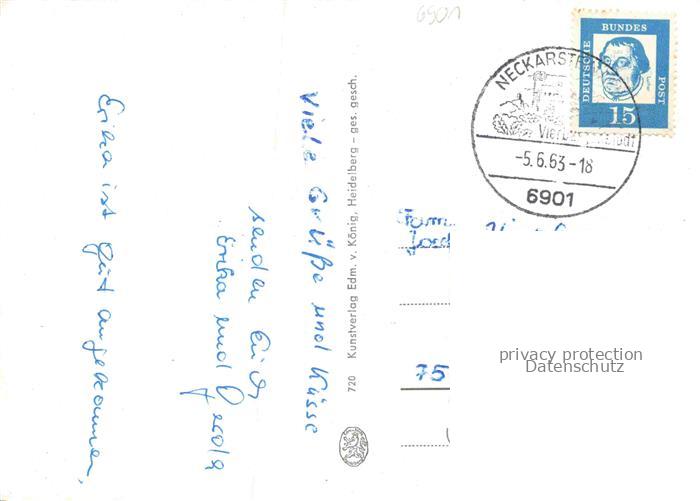 6901
Viele Grüße und Küsse
senden Euch
Erika und Gerola
Erika ist gut angekommen.
720 Kunstverlag Edm. v. König, Heidelberg – ges. gesch.
DEUTSCHE
BUNDES
POST
15
NECKARSTE
-5.6.63-18
6901
Fam
75
privacy protection
Datenschutz